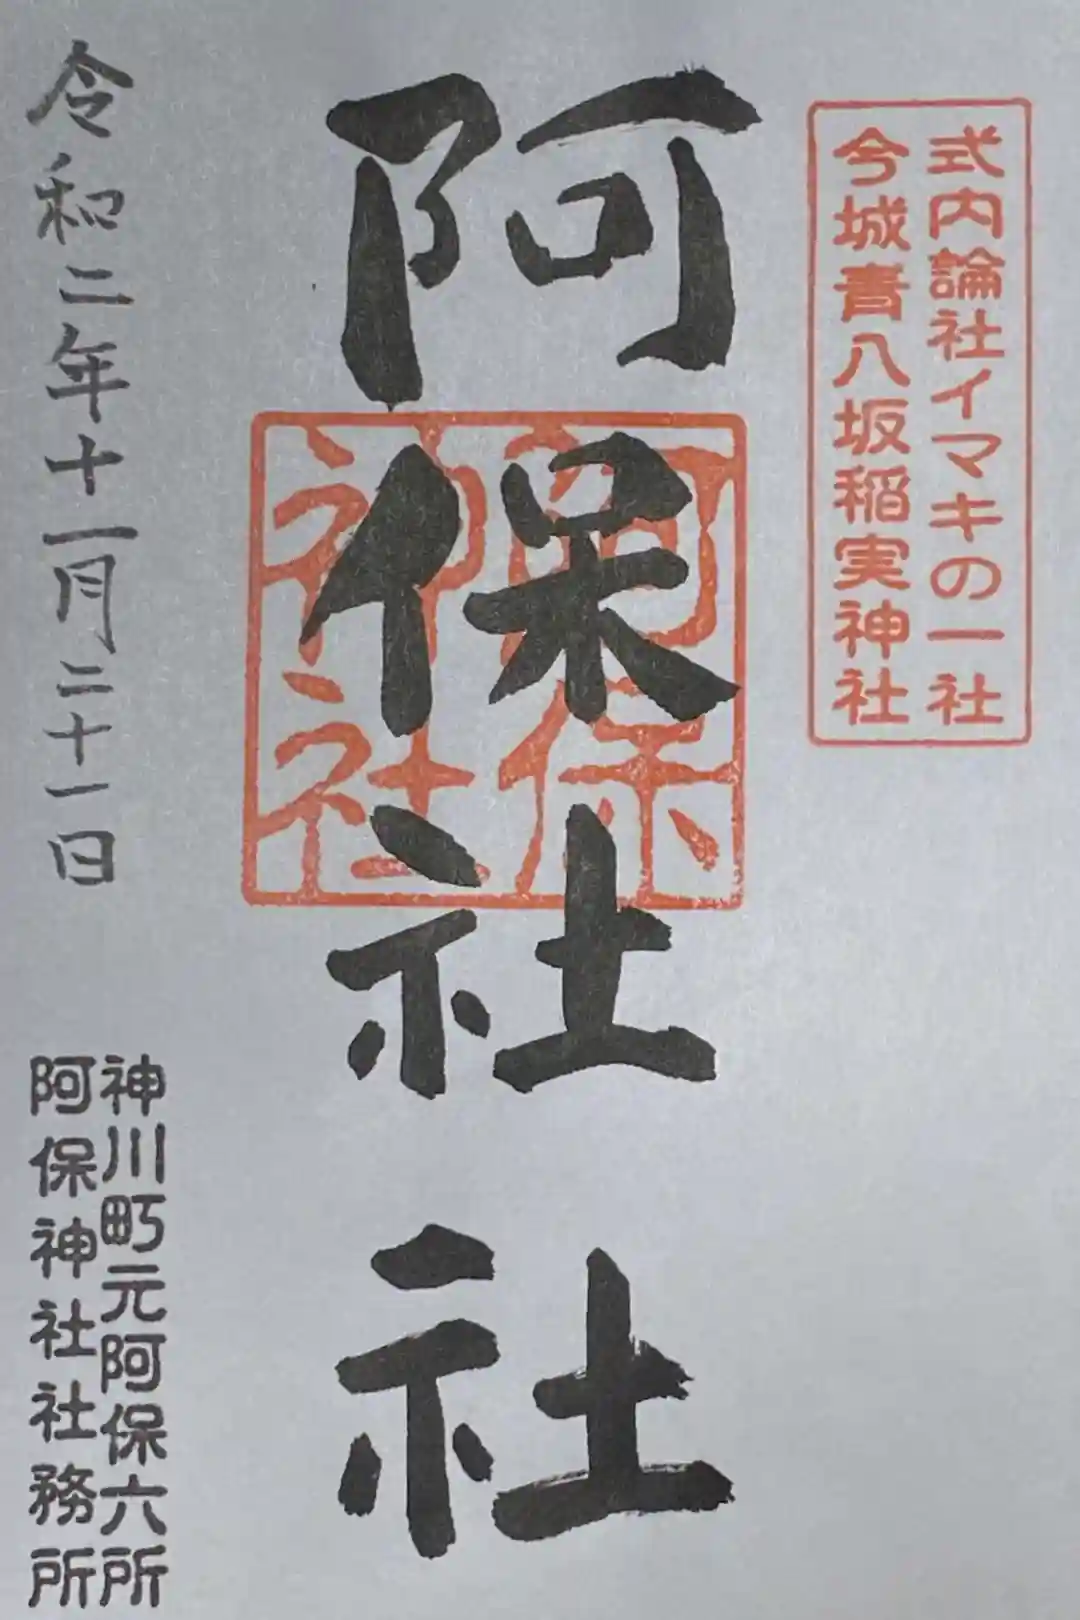 式内論社イマキの一社
今城青八坂稲実神社
阿保社社
阿保
神社
令和二年十一月二十一日
神川町元阿保六所
阿保神社社務所